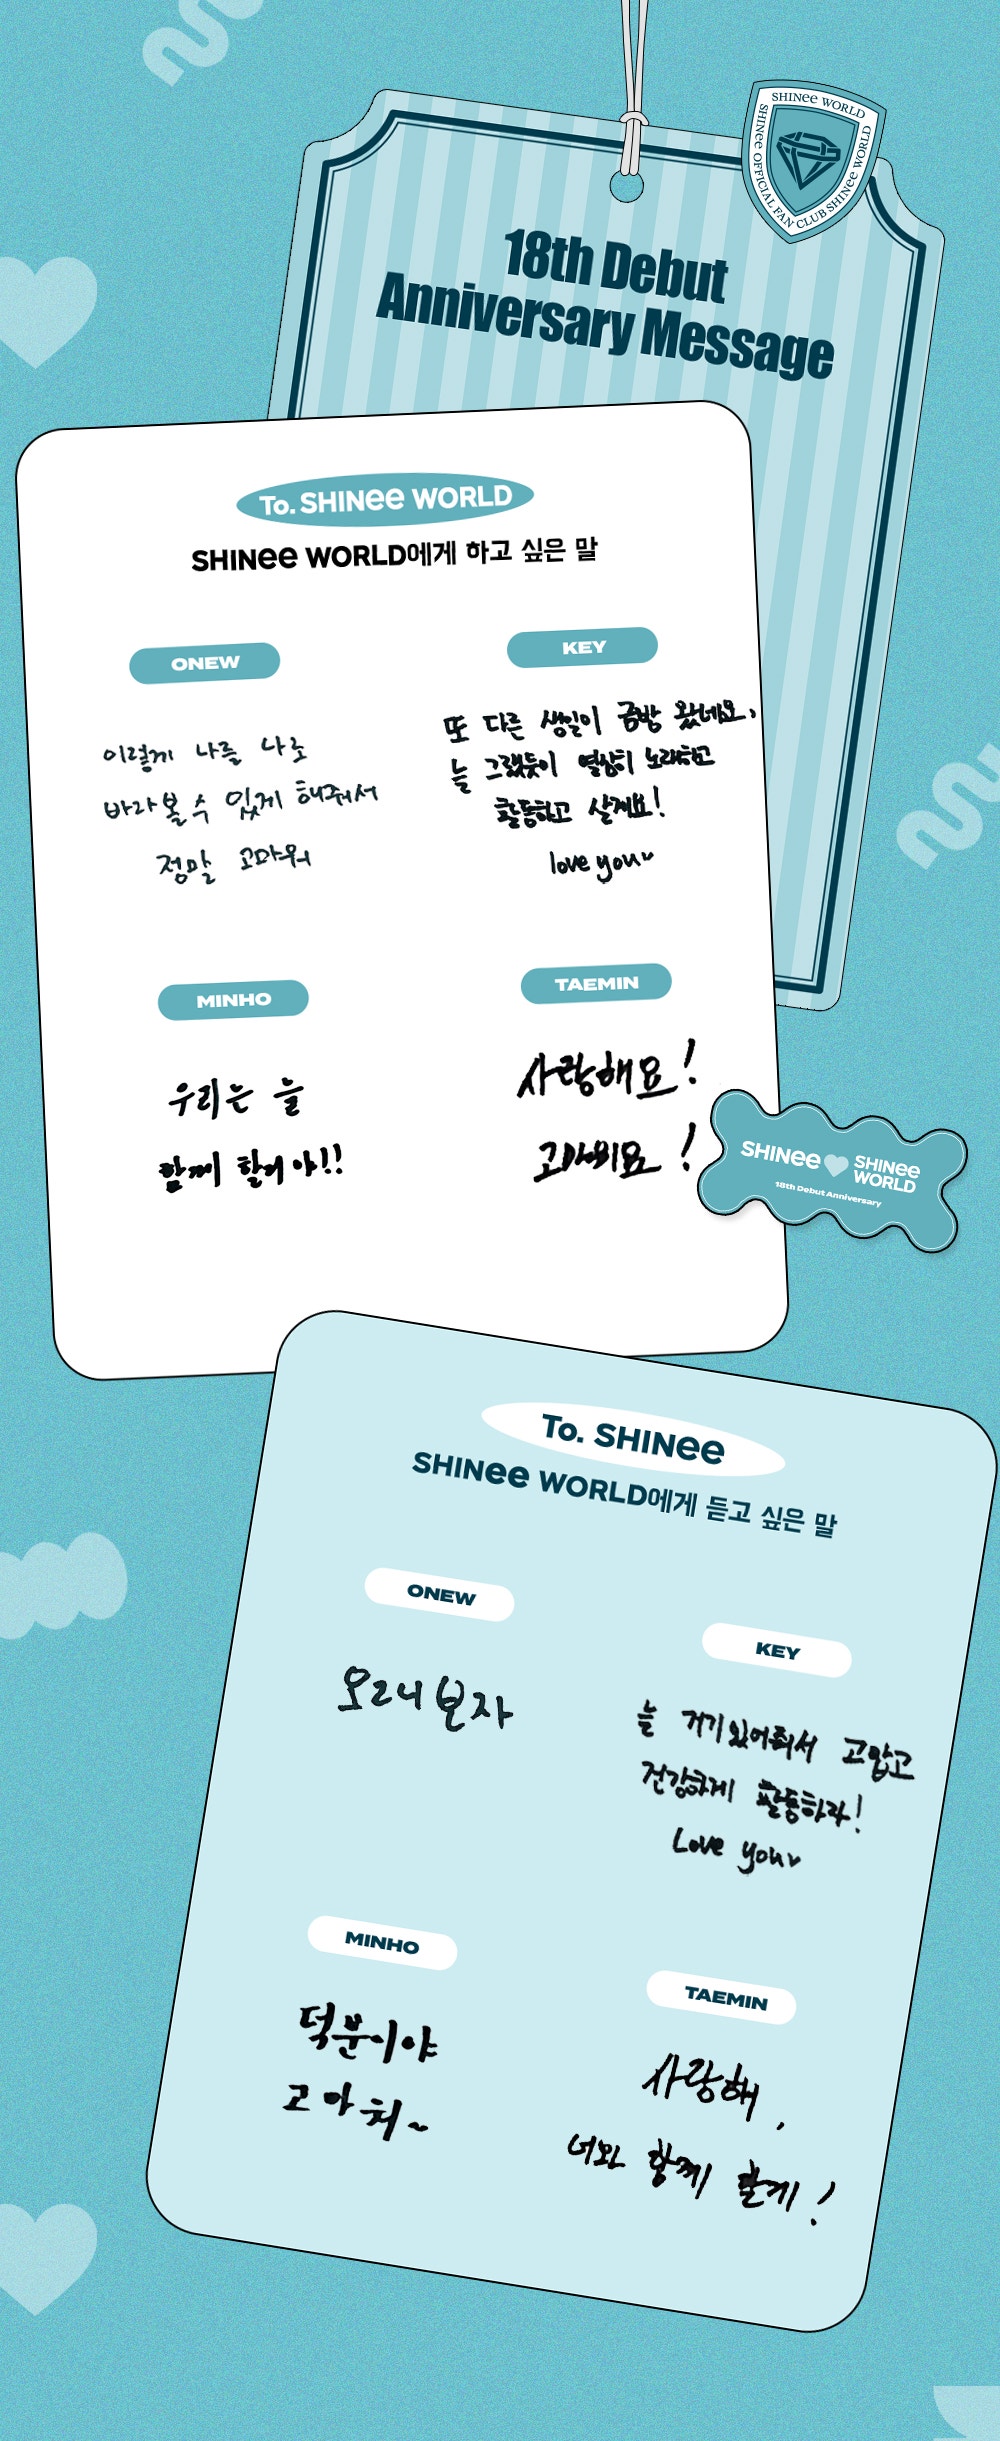 SHINee WORLD
SHINee OFFICIAL FAN CLUB SHINee WORLD
18th Debut
Anniversary Message
To. SHINee WORLD
SHINee WORLD에게 하고 싶은 말
ONEW
이렇게 나를 나로
바라볼 수 있게 해줘서
정말 고마워
KEY
또 다른 생일이 금방 왔네요,
늘 그랬듯이 열심히 노래하고
활동하고 살게요!
love you
MINHO
우리는 늘
함께 할거야!!
TAEMIN
사랑해요!
고마워요!
SHINee SHINee
WORLD
18th Debut Anniversary
To. SHINee
SHINee WORLD에게 듣고 싶은 말
ONEW
오래 보자
KEY
늘 거기 있어줘서 고맙고
건강하게 활동하라!
Love you
MINHO
덕분이야
고마워~
TAEMIN
사랑해,
너와 함께 할게!